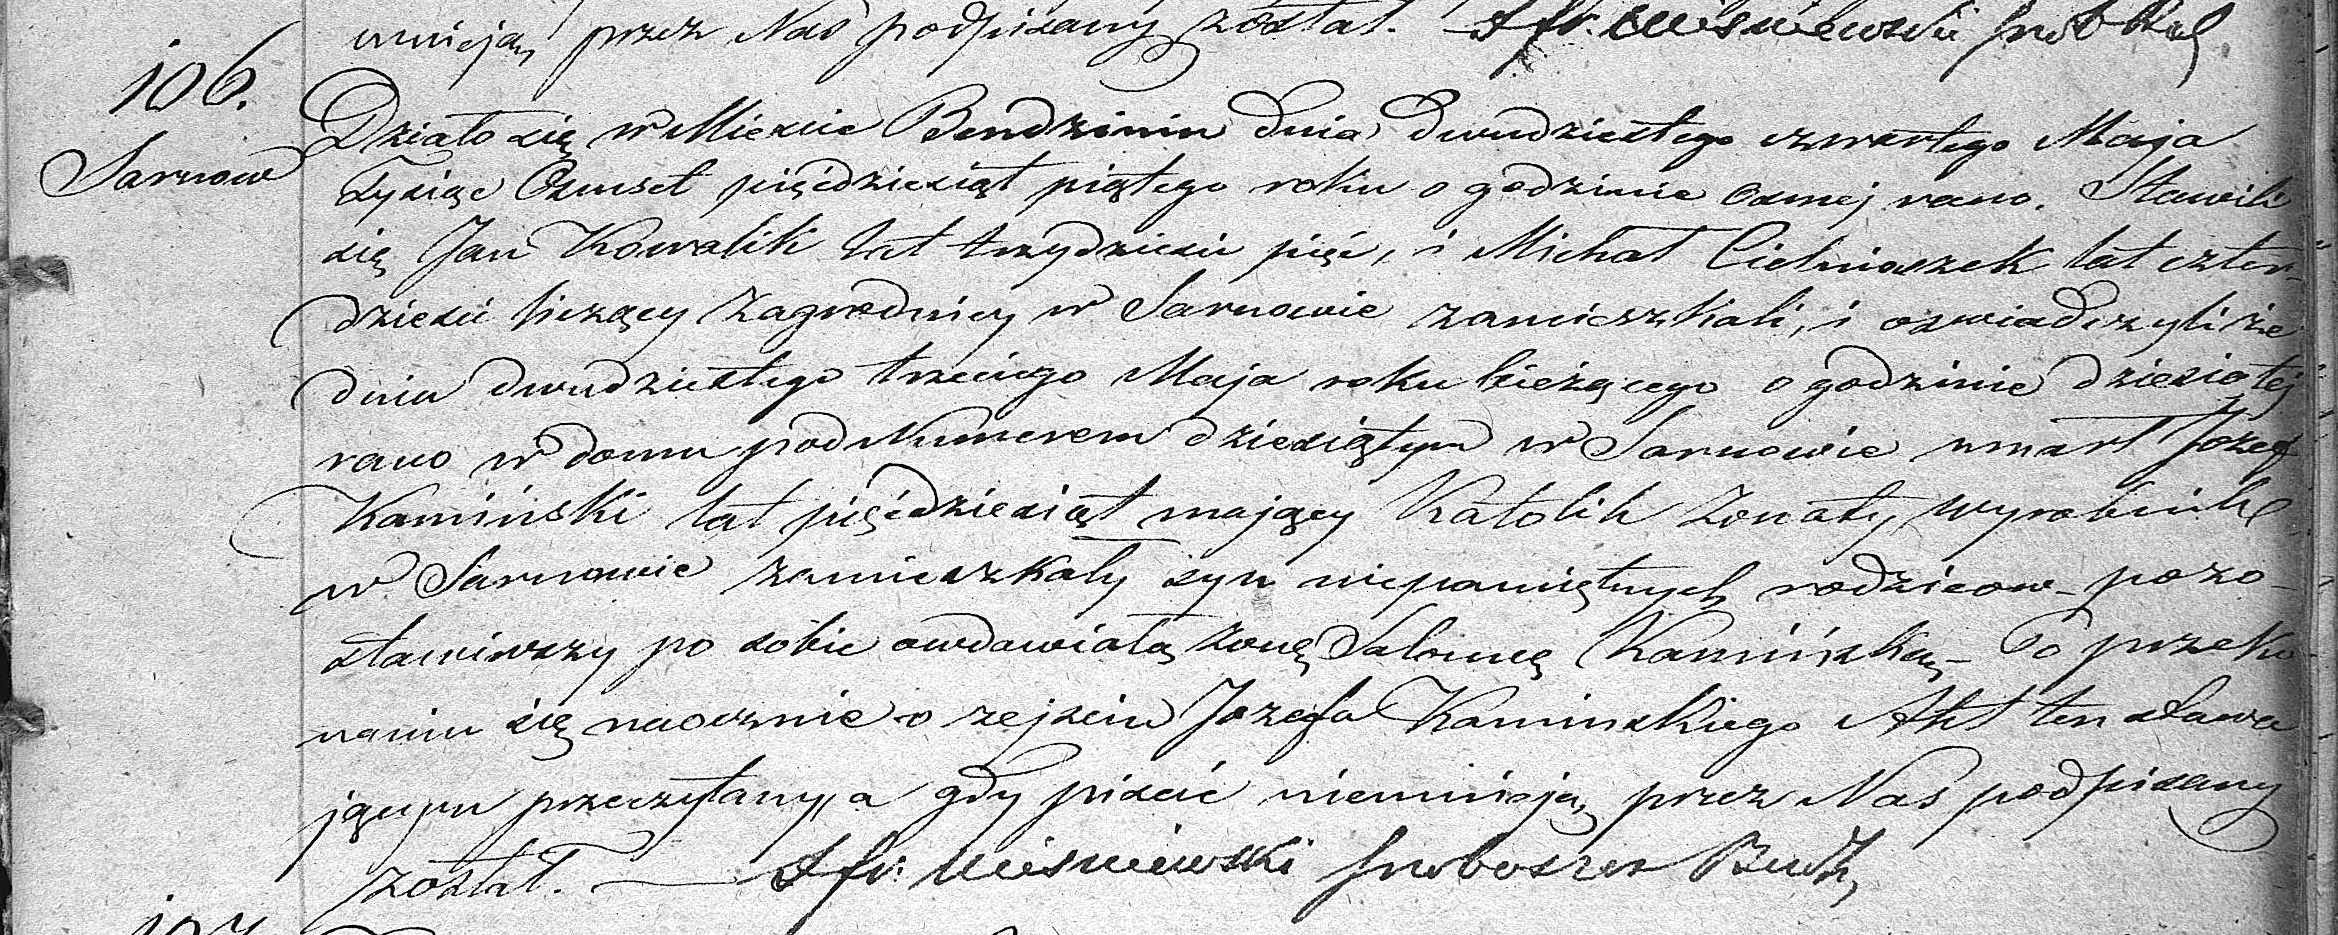 umieją przez Nas podpisany został. X fr. Wiśniewski prob
106.
Sarnow
Działo się w Miescie Bendzinie dnia dwudziestego czwartego Maja
Tysiąc Osmset pięćdziesiąt piątego roku o godzinie osmej rano. Stawili
się Jan Kowalik lat trzydziesci pięć, i Michał Cieśniaszek lat czter-
dziesci liczący zagrodnicy w Sarnowie zamieszkali, i oswiadczyli że
dnia dwudziestego trzeciego Maja roku bieżącego o godzinie dziesiątej
rano w domu pod Numerem dziesiątym w Sarnowie umarł Jozef
Kamiński lat pięćdziesiąt mający Katolik żonaty, wyrobnik
w Sarnowie zamieszkały syn niepamiętnych rodzicow - pozo-
stawiwszy po sobie owdowiałą żonę Salomeę Kamińską - Po przeko
naniu się naocznie o zejściu Jozefa Kaminskiego Akt ten stawa
jącym przeczytany, a gdy pisać nieumieją przez Nas podpisany
został. X fr. Wiśniewski proboszcz
107